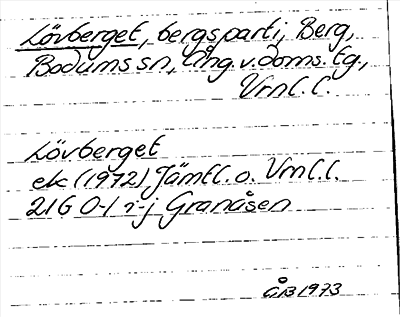 Lövberget, bergsparti, Berg,
Bodums sn, Ång. v. doms. tg.,
Vrnl. l.
Lövberget
ek (1972) Jämtl. o. Vrnl. l.
21G 0-1 i-j Granåsen
ÅB 1973